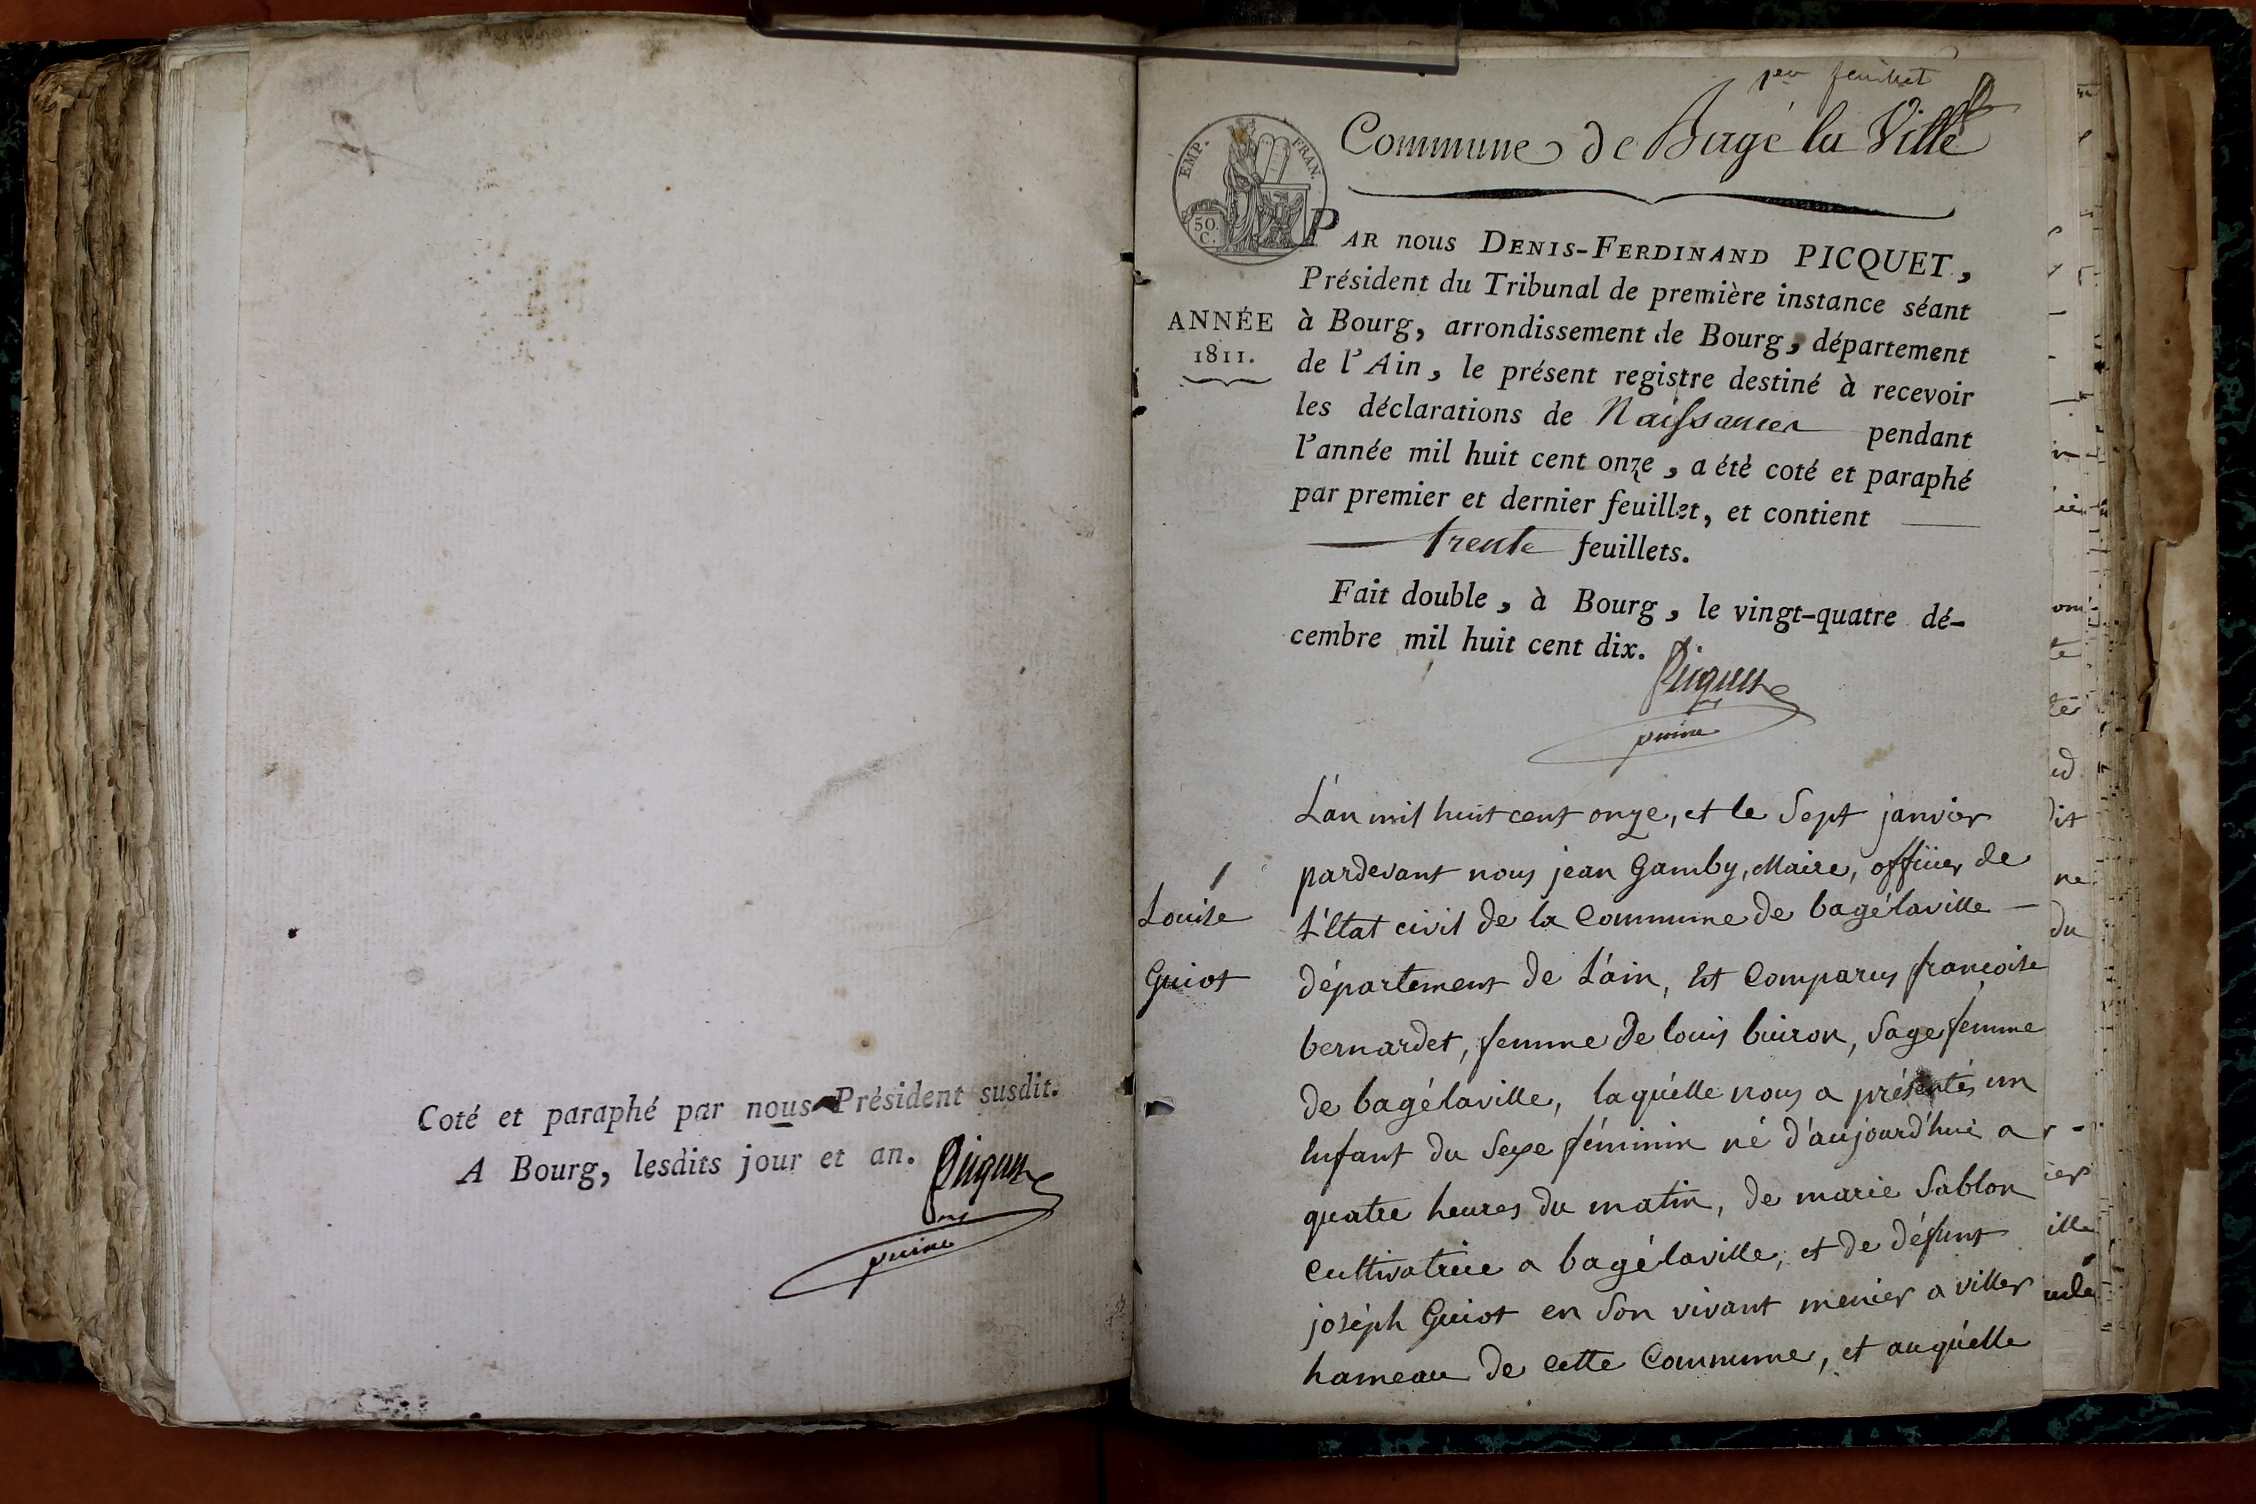 Coté et paraphé par nous Président susdit.
A Bourg, lesdits jour et an.
Picquet
1er feuillet
Commune de Bagé la Ville
EMP. FRAN.
50.
C.
PAR nous DENIS-FERDINAND PICQUET,
Président du Tribunal de première instance séant
ANNÉE
1811.
à Bourg, arrondissement de Bourg, département
de l'Ain, le présent registre destiné à recevoir
les déclarations de Naissances pendant
l'année mil huit cent onze, a été coté et paraphé
par premier et dernier feuillet, et contient
trente feuillets.
Fait double, à Bourg, le vingt-quatre dé-
cembre mil huit cent dix.
Picquet
L'an mil huit cent onze, et le Sept janvier
pardevant nous jean Gamby, Maire, officier de
Louise
L'état civil de la Commune de bagélaville
Guiot
département de L'ain, Est Comparus francoise
bernardet, femme de louis buiron, Sage femme
de bagélaville, laquélle nous a présentés un
Enfant du Sexe féminin né d'aujourd'hui a
quatre heures du matin, de marie Sablon
Cultivatrice a bagélaville, et de défunt
joséph Guiot en Son vivant menier a villes
hameau de cette Commune, et auquélle